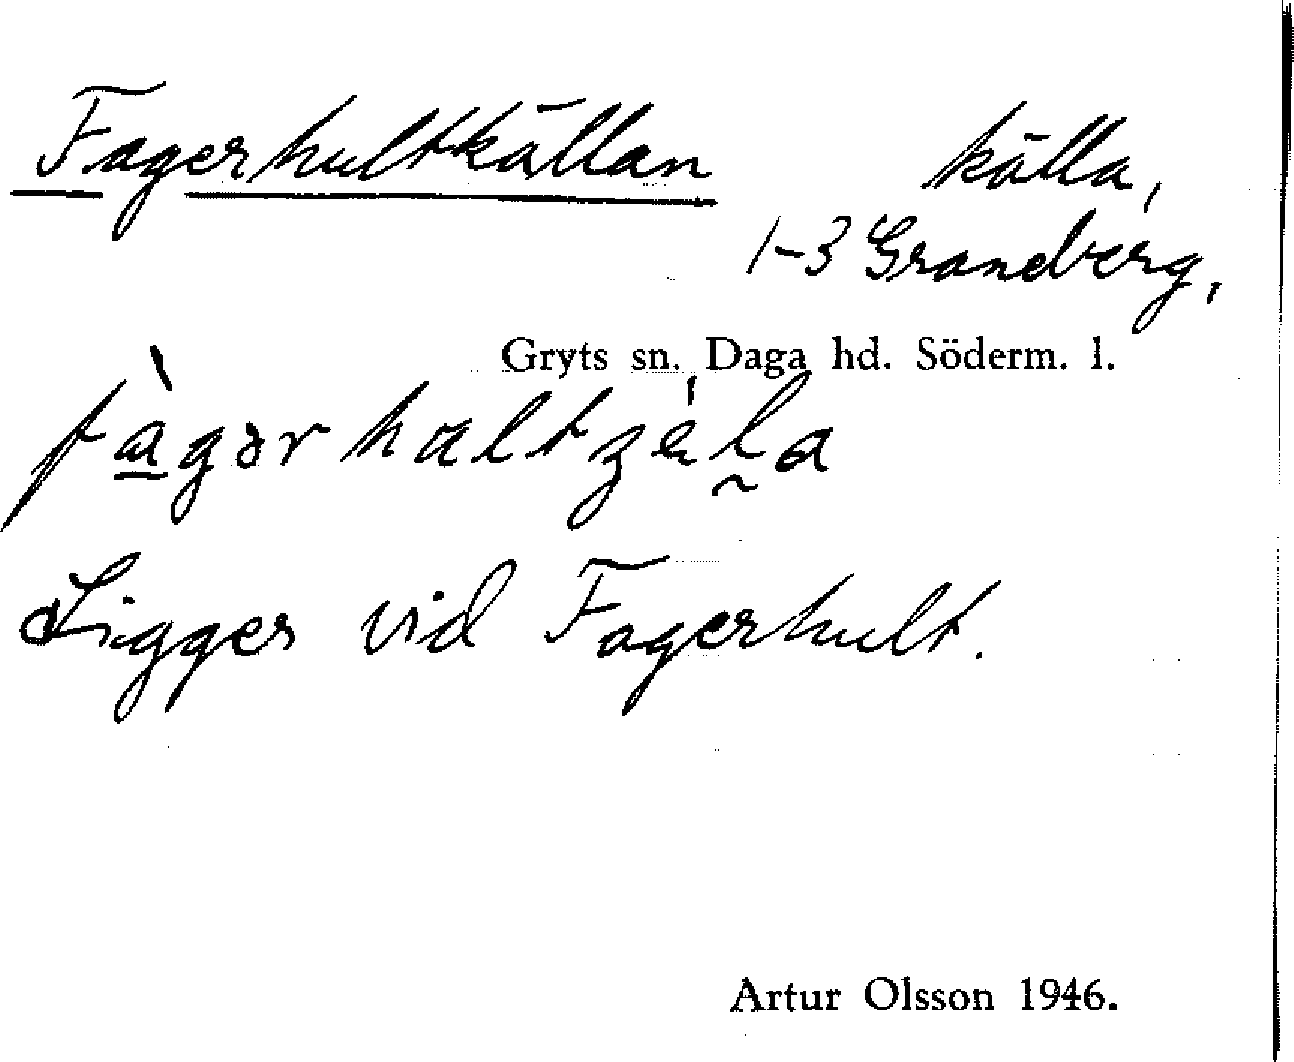 Fagerhultkällan källa,
1-3 Granberg,
Gryts sn. Daga hd. Söderm. l.
Ligger vid Fagerhult.
Artur Olsson 1946.